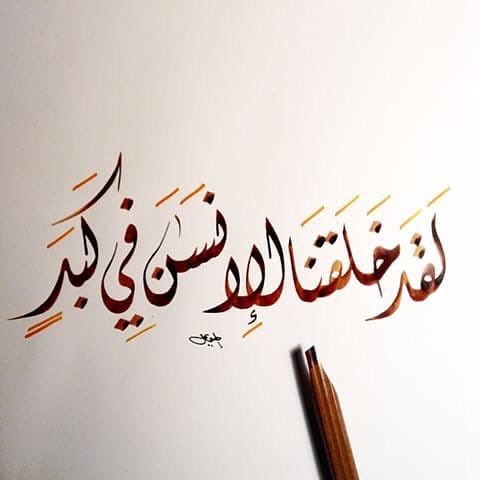 لَقَدْ خَلَقْنَا الْإِنسَٰنَ فِي كَبَدٍ